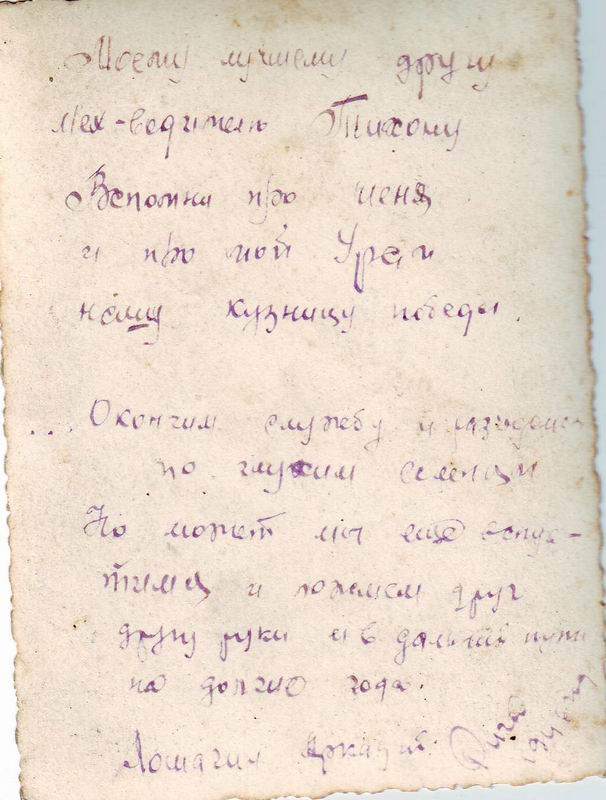 Моему лучшему другу
мех-водитель Тихону
Вспомни про меня
и про мой Урал
нашу кузницу победы.
... Окончим службу и разъедемся
по глухим селеньям
Но может мы ещё встре-
тимся и пожмем друг
другу руки и в дальний путь
на долгие года.
Лошагин Аркадий. Рига